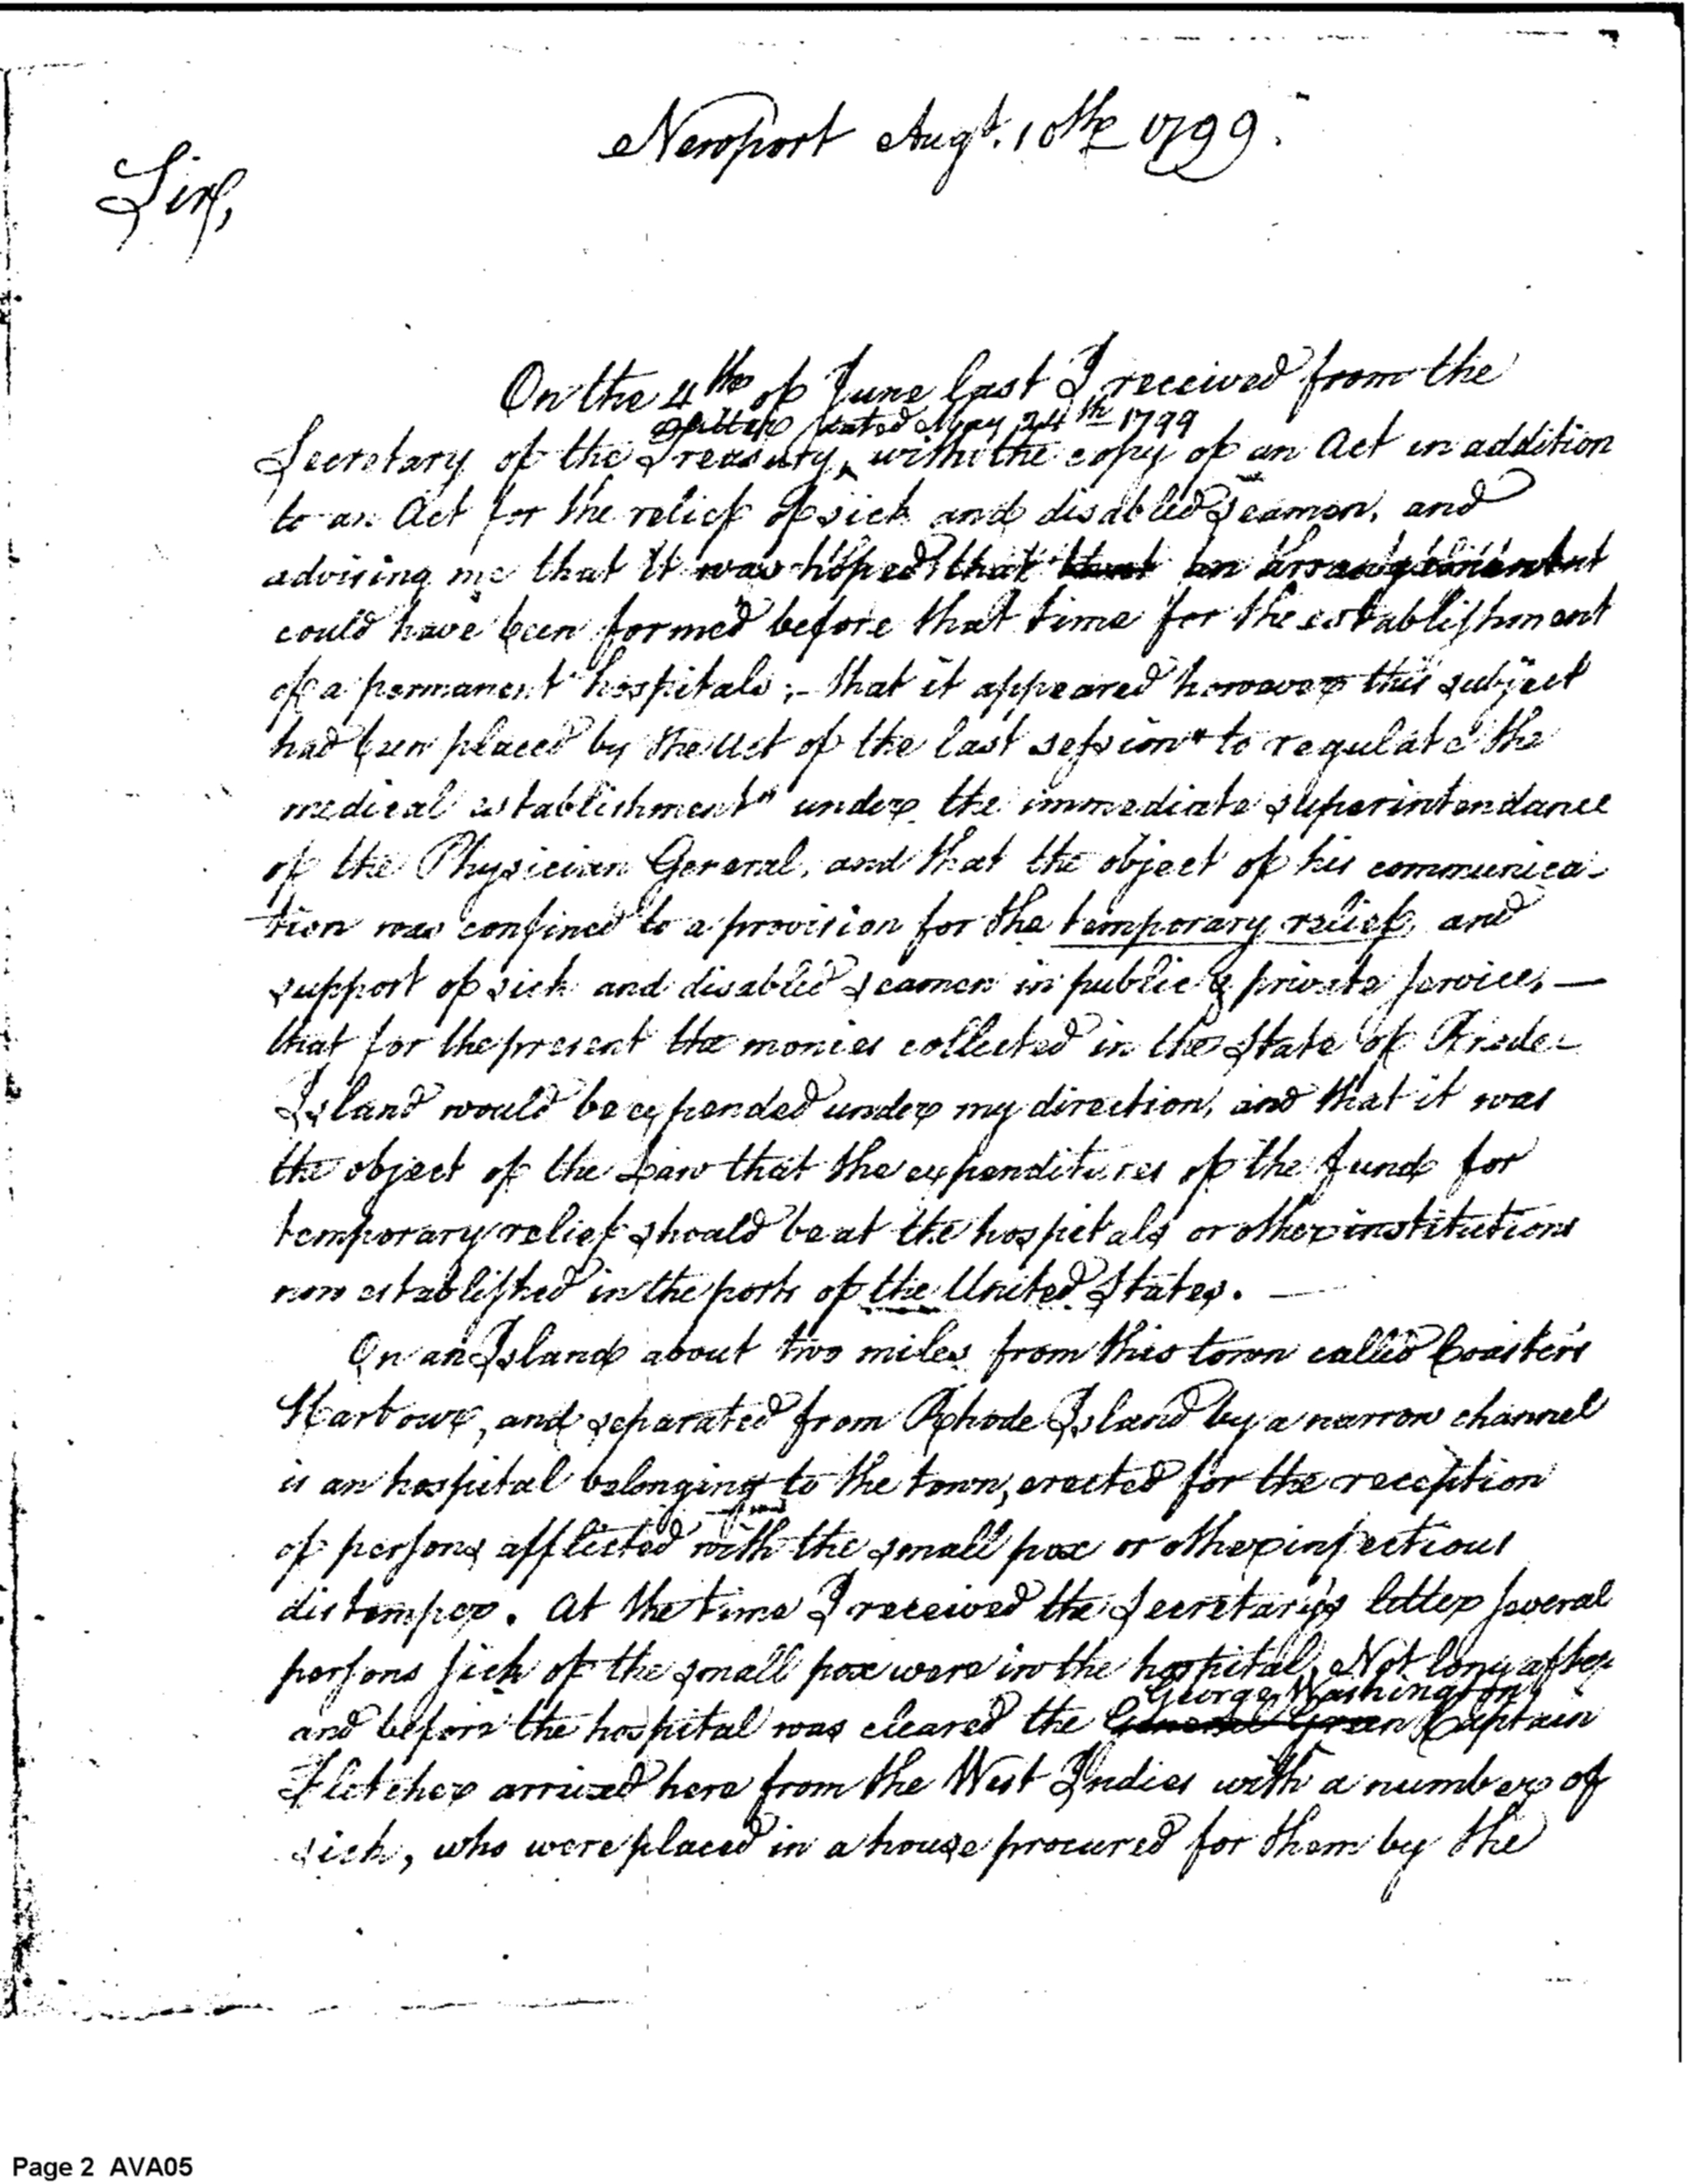 Newport Augt. 10th 1799.
Sir,
On the 4th of June last I received from the
a letter dated May 24th 1799
Secretary of the Treasury, with the copy of an Act in addition
to an Act for the relief of sick and disabled Seamen, and
advising me that it was hoped that an arrangement
could have been formed before that time for the establishment
of a permanent hospitals;- that it appeared however this subject
had been placed by the Act of the last session "to regulate the
medical establishment" under the immediate superintendance
of the Physician General, and that the object of his communica-
tion was confined to a provision for the temporary relief and
support of sick and disabled seamen in public & private service,—
that for the present the monies collected in the State of Rhode-
Island would be expended under my direction, and that it was
the object of the Law that the expenditures of the fund for
temporary relief should be at the hospitals or other institutions
now established in the ports of the United States. —
On an Island about two miles from this town called Coaster's
Harbour, and separated from Rhode Island by a narrow channel
is an hospital belonging to the town, erected for the reception
of persons afflicted with the small pox or other infectious
distemper. At the time I received the Secretary's letter several
persons sick of the small pox were in the hospital, Not long after
George Washington
and before the hospital was cleared the General Green Captain
Fletcher arrived here from the West Indies with a number of
sick, who were placed in a house procured for them by the
Page 2 AVA05